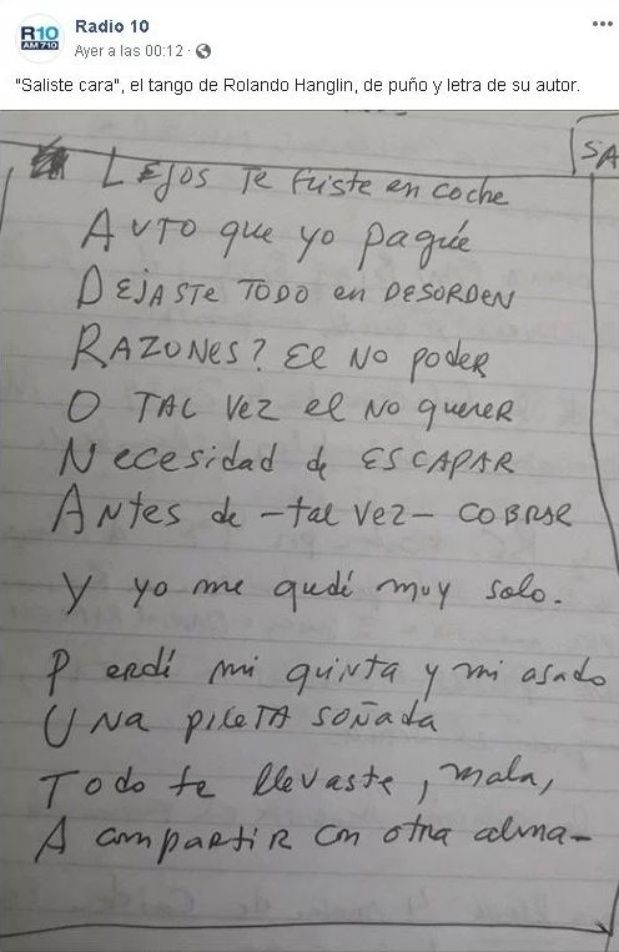 R10
AM 710
Radio 10
Ayer a las 00:12 ·
"Saliste cara", el tango de Rolando Hanglin, de puño y letra de su autor.
SA
LEjOS TE fuiste en coche
AUTO que yo paguíe
DEJASTE TODO en DESORDEN
RAZONES? EL NO podeR
O TAL VEZ el NO quereR
Necesidad de ESCAPAR
ANtes de -tal vez- COBRAR
Y yo me qudé muy solo.
Perdí mi quiNta y mi asado
UNa PILETA SOÑada
Todo te llevaste, mala,
A compartiR con otra alma-